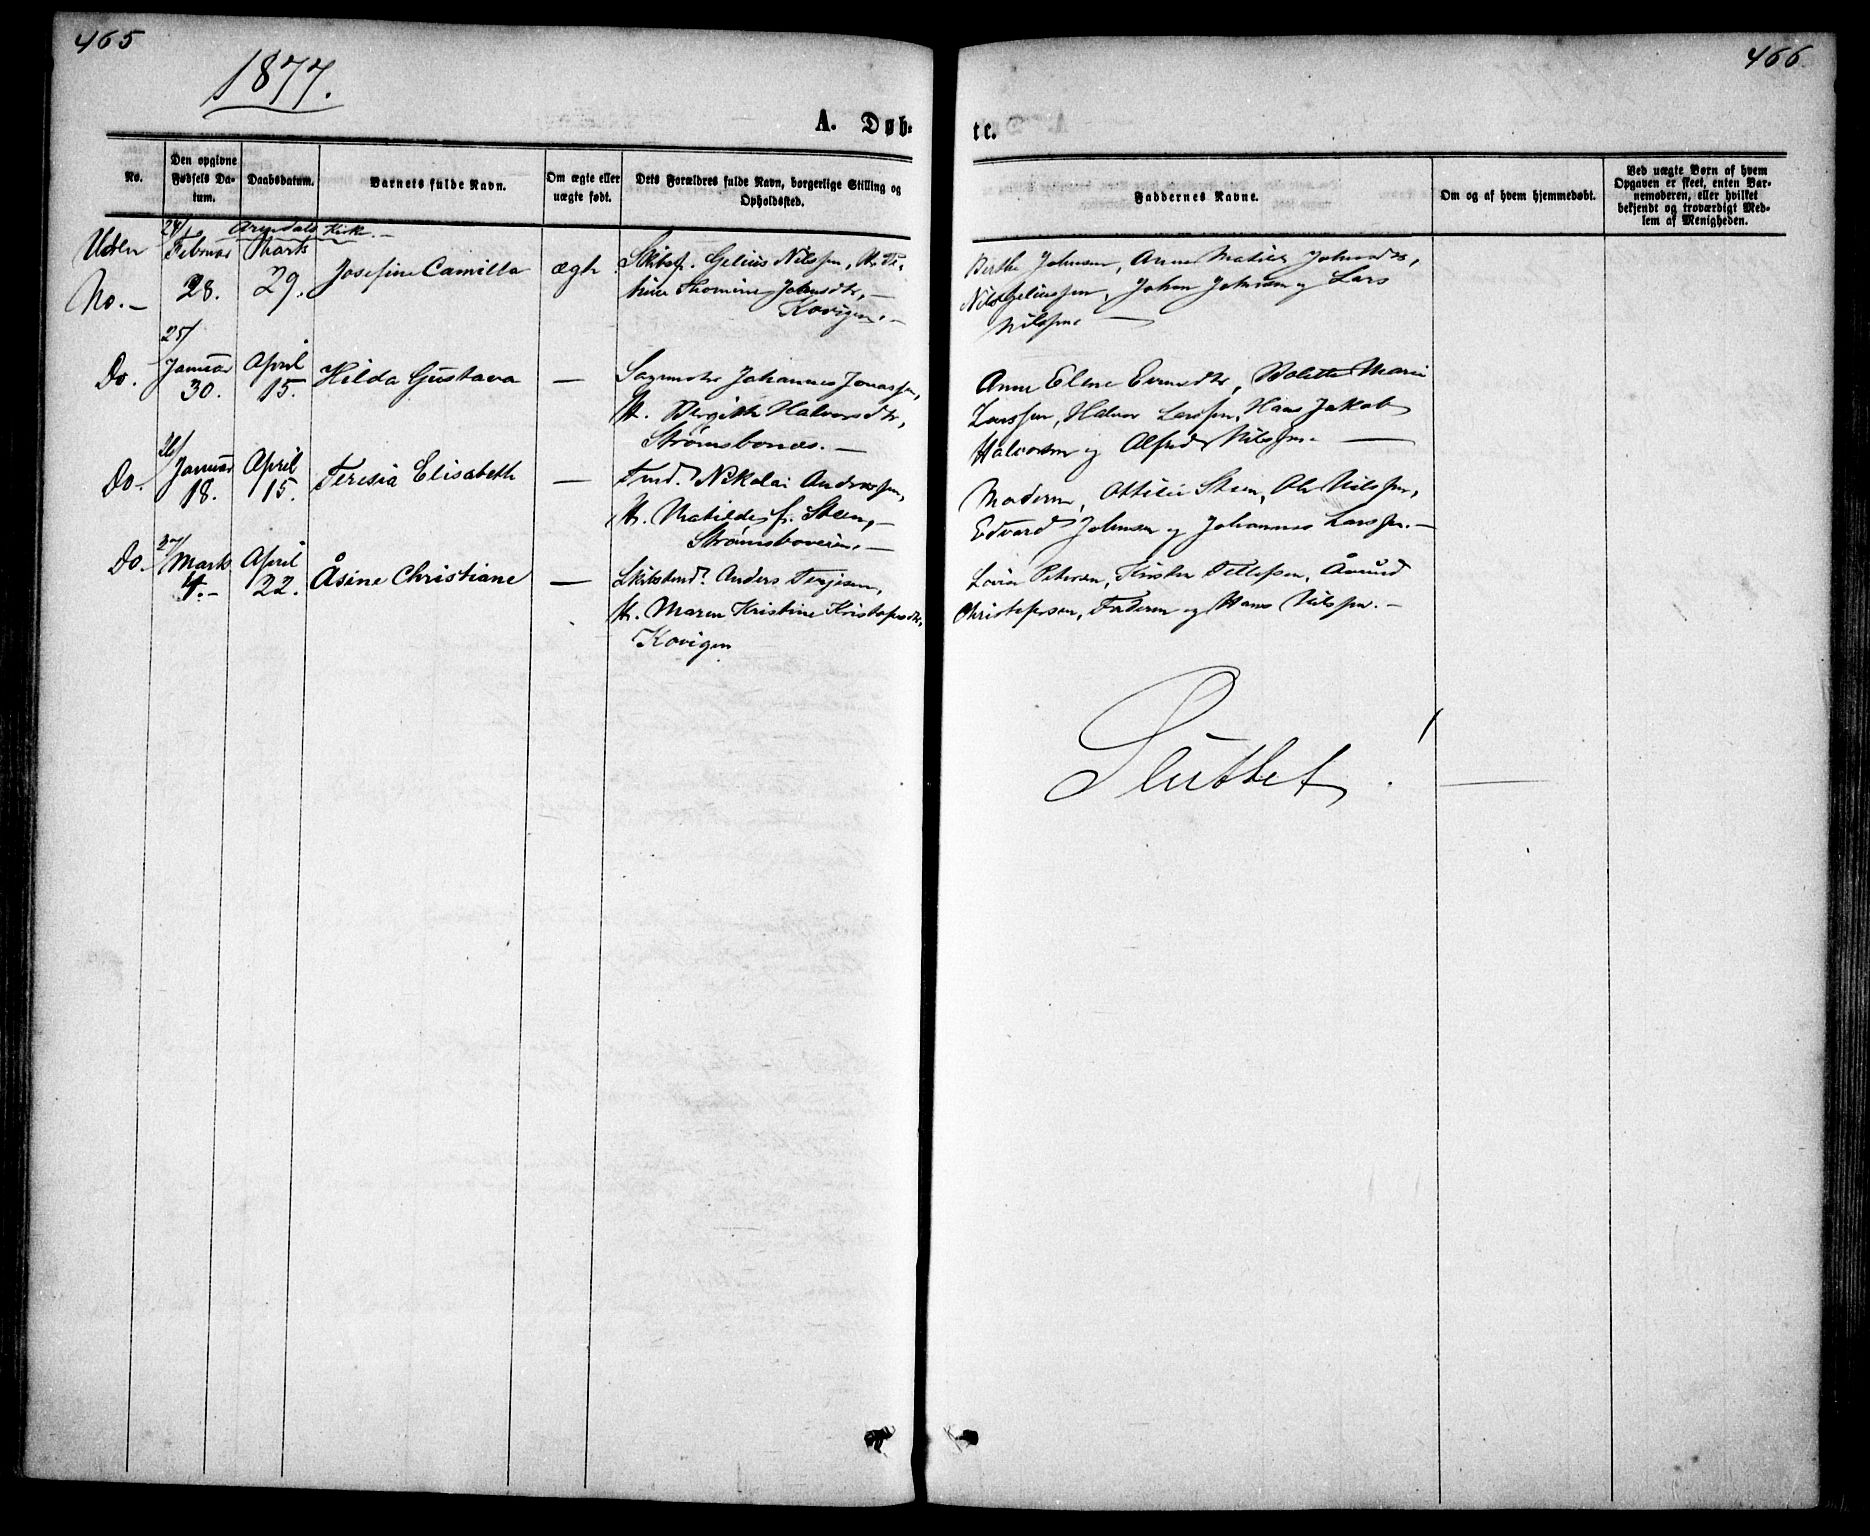 465
466
1877.
A. Døb-
te.
No.
Den opgivne Fødsels Da-
tum.
Daabsdatum.
Barnets fulde Navn.
Om ægte eller
uægte født.
Dets Forældres fulde Navn, borgerlige Stilling og
Opholdssted.
Faddernes Navne.
Om og af hvem hjemmedøbt.
Ved uægte Børn af hvem
Opgaven er skeet, enten Bar-
nemoderen, eller hvilket
bekjendt og troværdigt Med-
lem af Menigheden.
24/ Arendals Kirke.
Uden Februar Marts
No. 28. 29. Josefine Camilla ægte
Skibsf. Gelius Nilssen, H. Te-
Thomine Johnsdtr,
Kovigen.
Berthe Johnsen, Anne Johnsdtr,
Nils Geliussen, Johan Johnsen og Lars
Nilssen
25/
Do. Januar April Hilda Gustava —
30. 15.
Johannes Jonassen,
H. Bergitte Halvorsdtr,
Strømsbonæs.
Anne Elene Evensdtr, Bolette Marie
Larssen, Halvor Larssen, Hans Jakob
Halvorsen og Alfred Nilssen.
26/
Do. Januar April Teresia Elisabeth —
18. 15.
Tmd. Nikolai Anderssen,
H. Matilde f. Steen,
Strømsboveien.
Moderen, Ottilie Steen, Ole Nilssen,
Edvard Johnsen og Johannes Larssen.
27/
Do. Marts April Åsine Christiane —
4. 22.
Skibstmd. Anders Terjesen,
H. Maren Kristine Kristofersdtr,
Kovigen
Lovise Petersen, Kirsten Tellefsen, Åmund
Christofersen, Faderen og Hans Nilssen.
Sluttet!